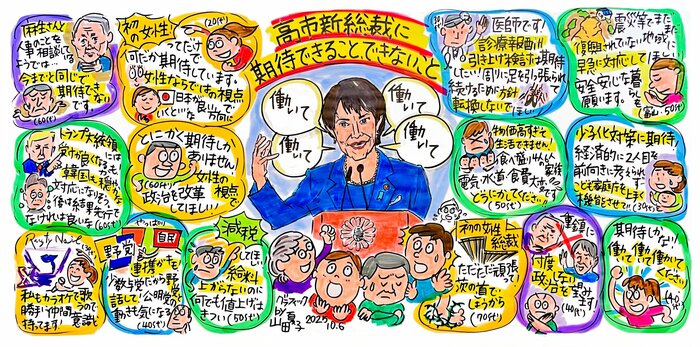 高市新総裁に
期待できること、できないこと
働いて
働いて
働いて
働いて
麻生さんと
人事のことを
相談して
いるようでは…
今までと同じで
期待でき
ないです。
(60代)
初の女性!
(20代)
ってだけで
何だか期待しています。
女性ならではの視点
で
日本が良い方向に
いくといいな
トランプ大統領
には
受けが良くなっても
韓国も穏やかな
対応になりそう。
後は結果先行で
なければ良いな(60代)
とにかく期待しか
ありません!
女性の視点で
(60代)
政治を改革
してほしい
私もカラオケで歌うので
勝手に仲間意識
持ってます!
野党
自民
やっぱり
連携かな。
少数与党だから野党と
話して!公明党の
動きも気になる(40代)
減税
してほしい
給料
上がらないのに
何でも値上げは
きつい(50代)
医師です!
診療報酬
引き上げ検討は期待
したい!周りに足を引っ張られて
続けるために方針
転換しないでほしい
震災等でまだまだ
復興されていない地域に
早急に対応してほしい
安全安心な暮らし
願います。
(富山・50代)
物価高すぎて
生活できません!
食べ盛り4人家族
電気、水道、食費、大変です
どうにかしてください!
(50代)
少子化対策に期待
経済的に2人目を
前向きに考えられず
こども家庭庁を上手く
機能させて!!(30代)
初の女性
総裁
ただただ頑張って
次の首で
ほろうから
(70代)
重鎮に
忖度しない
政治を
願います。
(40代)
期待しかない!
働いて働いて働いて
ください
(40代)
グラレコ
山田夏子
2025
10.6